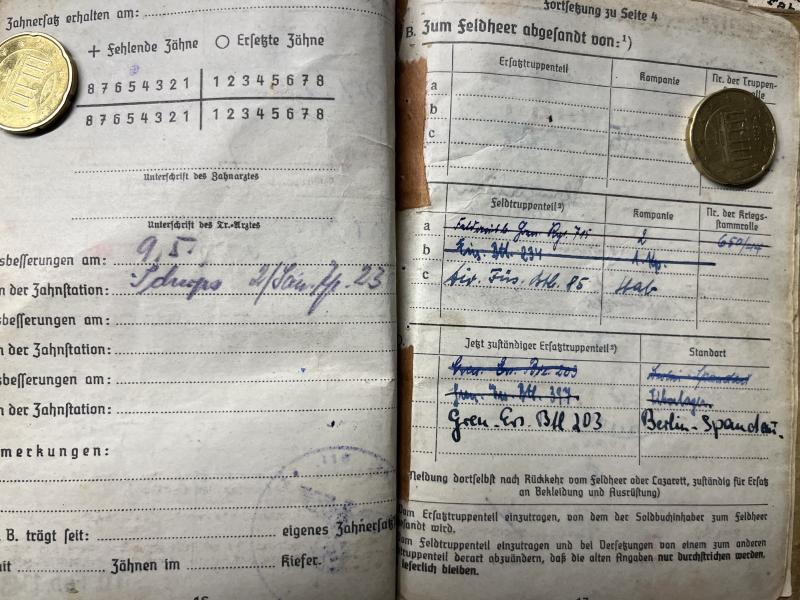 Zahnersatz erhalten am:
+ Fehlende Zähne O Ersetzte Zähne
8 7 6 5 4 3 2 1 1 2 3 4 5 6 7 8
8 7 6 5 4 3 2 1 1 2 3 4 5 6 7 8
Unterschrift des Zahnarztes
Unterschrift des Tr.-Arztes
sbesserungen am: 9.5.
n der Zahnstation: 2/San. 23
sbesserungen am:
n der Zahnstation:
sbesserungen am:
n der Zahnstation:
merkungen:
B. trägt seit: eigenes Zahnersatz
mit Zähnen im Kiefer.
Fortsetzung zu Seite 4
B. Zum Feldheer abgesandt von:¹)
Ersatztruppenteil Kompanie Nr. der Truppen-
rolle
a
b
c
Feldtruppenteil²) Kompanie Nr. der Kriegs-
stammrolle
a Gren. Rgt. 2
b Btl. 234
c Div. Füs. Btl. 85 Stab
Jetzt zuständiger Ersatztruppenteil²) Standort
Gren. Ers. Btl. 203 Berlin-Spandau
Gren. Btl. 397
Gren. Ers. Btl 203 Berlin-Spandau.
Meldung dortselbst nach Rückkehr vom Feldheer oder Lazarett, zuständig für Ersatz
an Bekleidung und Ausrüstung)
Vom Ersatztruppenteil einzutragen, von dem der Soldbuchinhaber zum Feldheer
gesandt wird.
Vom Feldtruppenteil einzutragen und bei Versetzungen von einem zum anderen
truppenteil derart abzuändern, daß die alten Angaben nur durchstrichen werden,
leserlich bleiben.